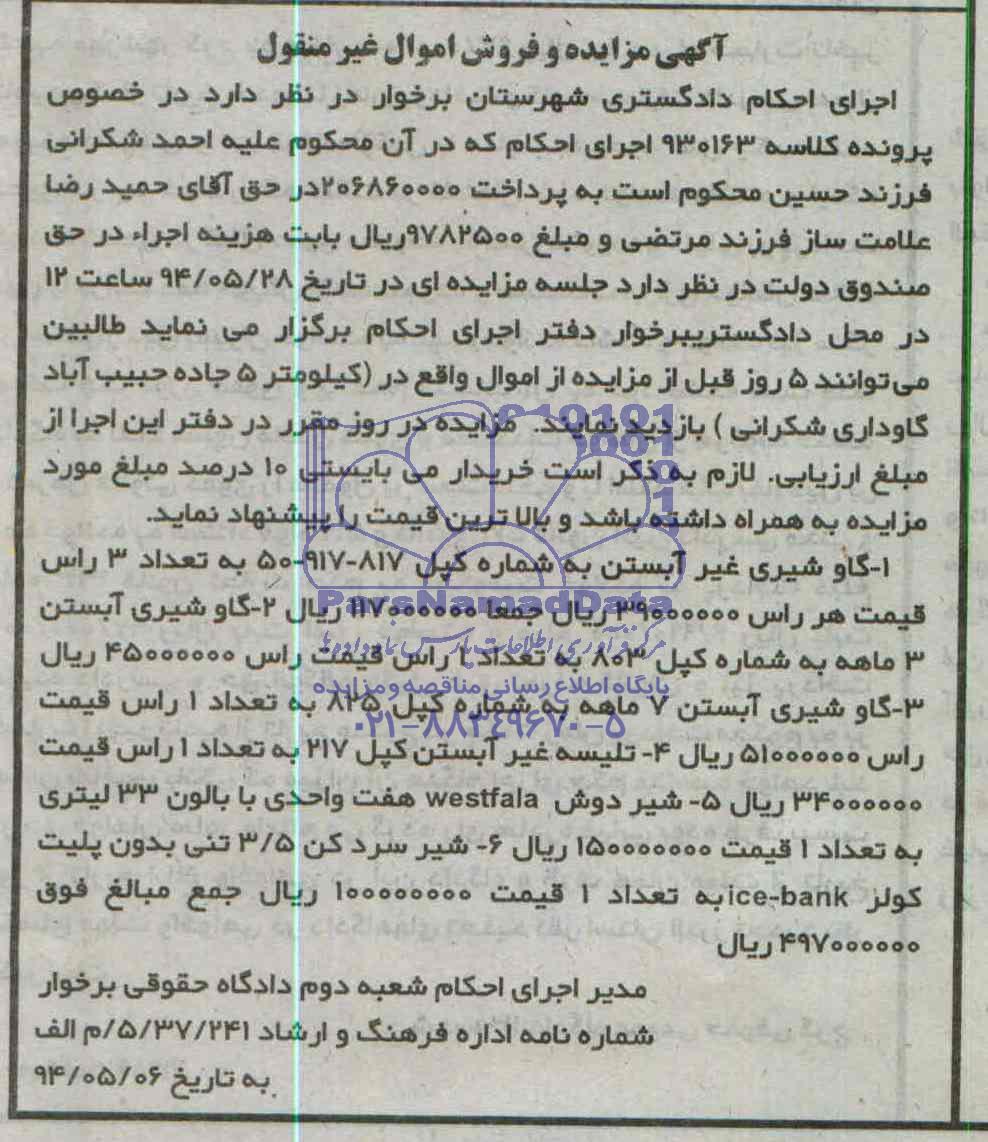 آگهی مزایده و فروش اموال غیر منقول
اجرای احکام دادگستری شهرستان برخوار در نظر دارد در خصوص
پرونده کلاسه ۹۳۰۱۶۳ اجرای احکام که در آن محکوم علیه احمد شکرانی
فرزند حسین محکوم است به پرداخت ۲۰۶۸۶۰۰۰۰در حق آقای حمید رضا
علامت ساز فرزند مرتضی و مبلغ ۹۷۸۲۵۰۰ریال بابت هزینه اجراء در حق
صندوق دولت در نظر دارد جلسه مزایده ای در تاریخ ۹۴/۰۵/۲۸ ساعت ۱۲
در محل دادگستریبرخوار دفتر اجرای احکام برگزار می نماید طالبین
می‌توانند ۵ روز قبل از مزایده از اموال واقع در (کیلومتر ۵ جاده حبیب آباد
گاوداری شکرانی ) بازدید نمایند. مزایده در روز مقرر در دفتر این اجرا از
مبلغ ارزیابی. لازم به ذکر است خریدار می بایستی ۱۰ درصد مبلغ مورد
مزایده به همراه داشته باشد و بالا ترین قیمت را پیشنهاد نماید.
۱-گاو شیری غیر آبستن به شماره کپل ۸۱۷-۹۱۷-۵۰ به تعداد ۳ راس
قیمت هر راس ۳۹۰۰۰۰۰۰ ریال جمعا ۱۱۷۰۰۰۰۰۰ ریال ۲-گاو شیری آبستن
۳ ماهه به شماره کپل ۸۰۳ به تعداد ۱ راس قیمت راس ۴۵۰۰۰۰۰۰ ریال
۳-گاو شیری آبستن ۷ ماهه به شماره کپل ۸۲۵ به تعداد ۱ راس قیمت
راس ۵۱۰۰۰۰۰۰ ریال ۴- تلیسه غیر آبستن کپل ۲۱۷ به تعداد ۱ راس قیمت
۳۴۰۰۰۰۰۰ ریال ۵- شیر دوش westfala هفت واحدی با بالون ۳۳ لیتری
به تعداد ۱ قیمت ۱۵۰۰۰۰۰۰۰ ریال ۶- شیر سرد کن ۳/۵ تنی بدون پلیت
کولر ice-bankبه تعداد ۱ قیمت ۱۰۰۰۰۰۰۰۰ ریال جمع مبالغ فوق
۴۹۷۰۰۰۰۰۰ ریال
مدیر اجرای احکام شعبه دوم دادگاه حقوقی برخوار
شماره نامه اداره فرهنگ و ارشاد ۵/۳۷/۲۴۱/م الف
به تاریخ ۹۴/۰۵/۰۶
ParsNamadData
مرکز فرآوری اطلاعات پارس نماد داده ها
پایگاه اطلاع رسانی مناقصه و مزایده
۰۲۱-۸۸۳۴۹۶۷۰-۵